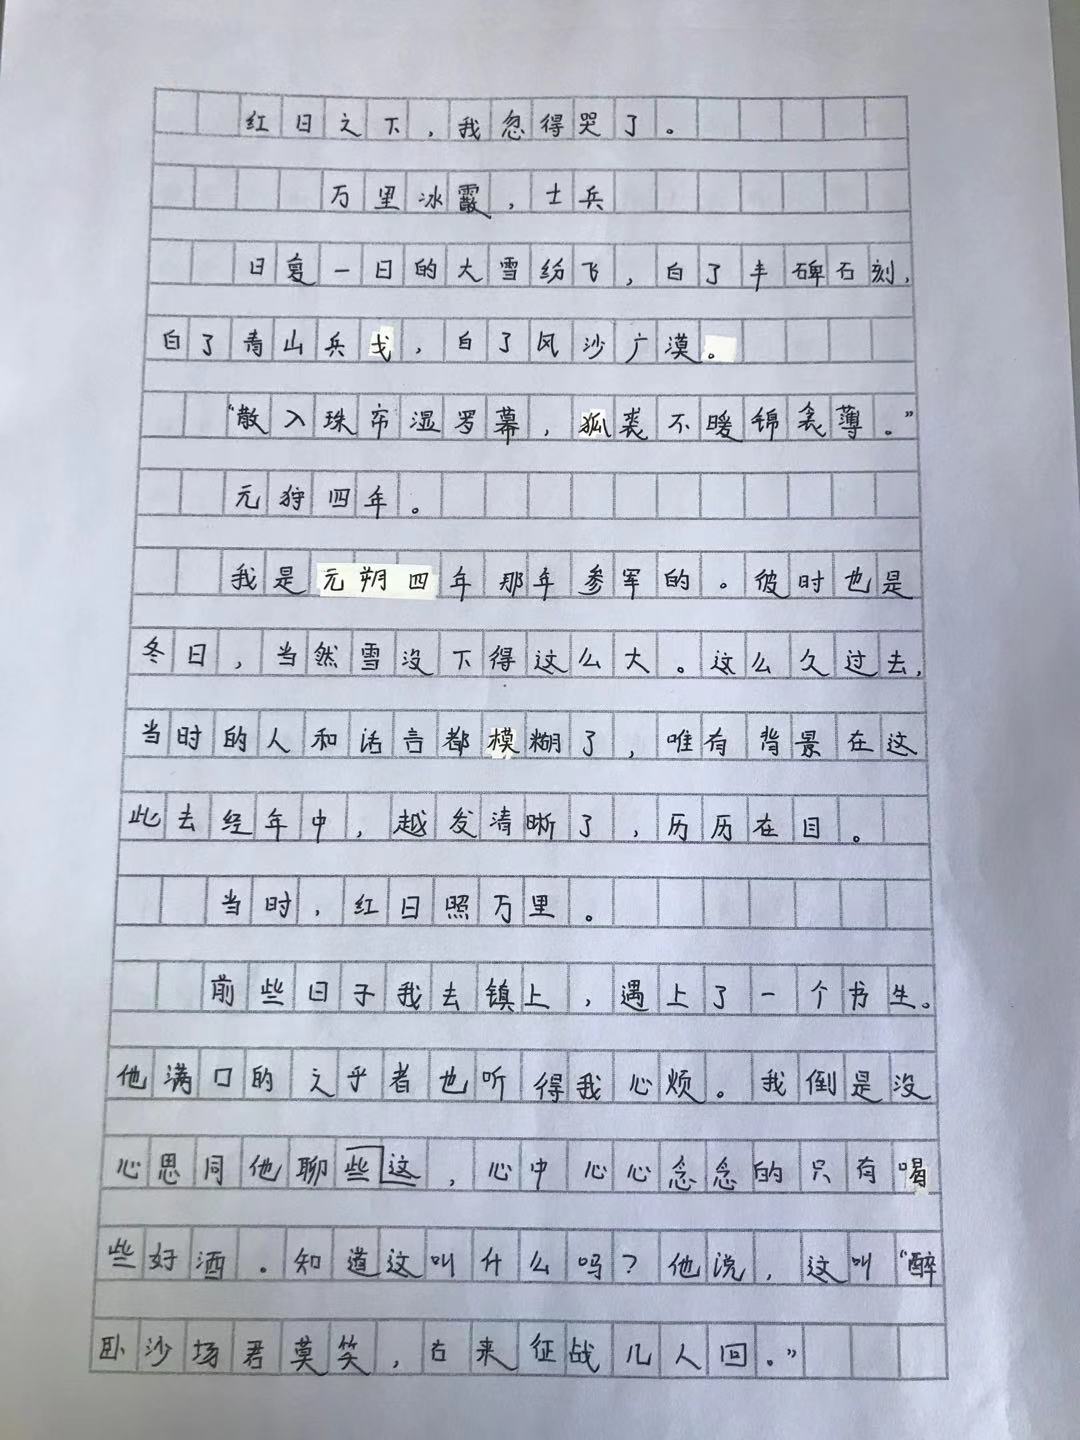 红日之下，我忽得哭了。
万里冰霰，士兵
日复一日的大雪纷飞，白了丰碑石刻，
白了青山兵戈，白了风沙广漠。
“散入珠帘湿罗幕，狐裘不暖锦衾薄。”
元狩四年。
我是元朔四年那年参军的。彼时也是
冬日，当然雪没下得这么大。这么久过去，
当时的人和话言都模糊了，唯有背景在这
此去经年中，越发清晰了，历历在目。
当时，红日照万里。
前些日子我去镇上，遇上了一个书生。
他满口的之乎者也听得我心烦。我倒是没
心思同他聊些这，心中心心念念的只有喝
些好酒。知道这叫什么吗？他说，这叫“醉
卧沙场君莫笑，古来征战几人回。”